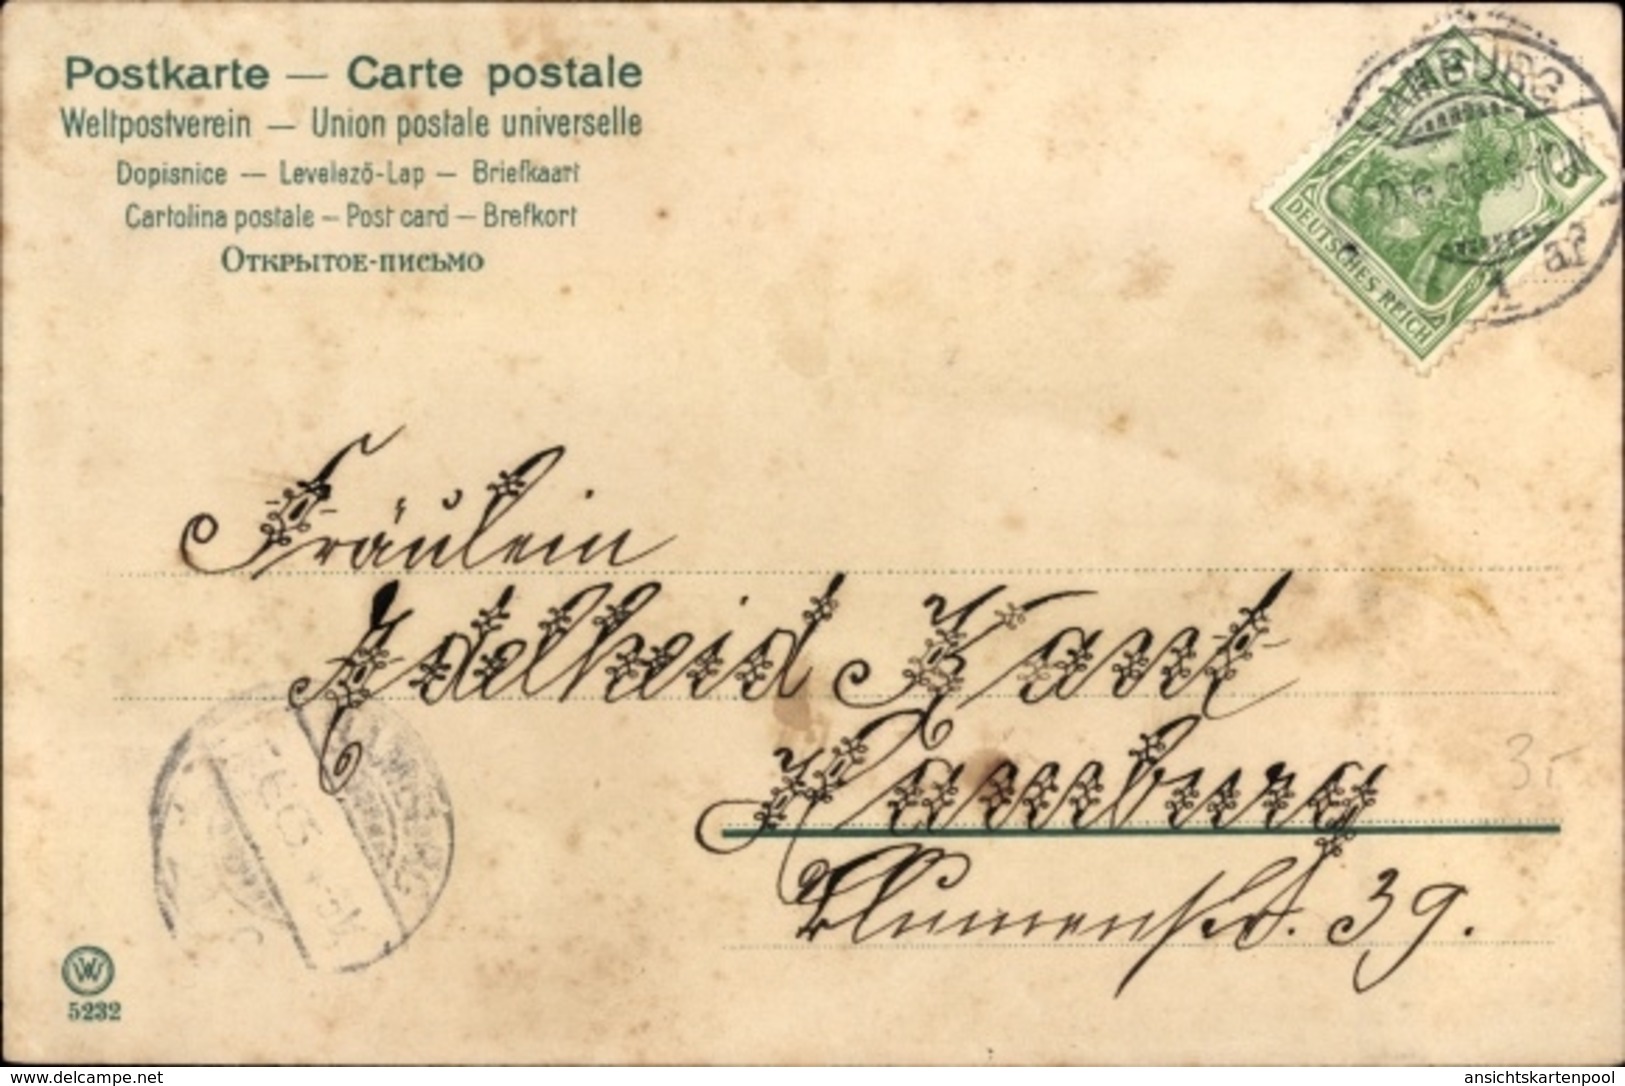 Postkarte — Carte postale
Weltpostverein — Union postale universelle
Dopisnice — Levelező-Lap — Briefkaart
Cartolina postale — Post card — Brefkort
Открытое-письмо
HAMBURG
1 ar
DEUTSCHES REICH
Fräulein
Adelheid Kant
Hamburg
Blumenst. 39.
3.-
W
5232
www.delcampe.net
ansichtskartenpool